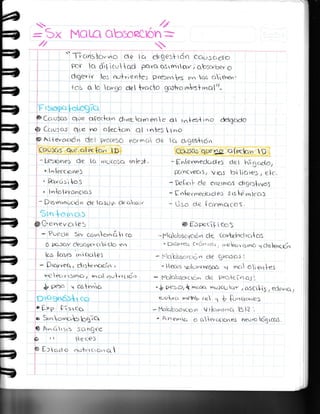 = Sx MALA absorción =
"Trastorno de la digestión causado
por la dificultad para asimilar, absorber o
digerir los nutrientes presentes en los alimen-
tos a lo largo del tracto gastrointestinal".
Fisiopatología
Causas que afectan directamente al intestino delgado
Causas que no afectan al intestino
Alteración del proceso normal de la digestión
Causas que afectan ID
- Lesiones de la mucosa intest.
• Infecciones
• Parásitos
• Intolerancias
- Disminución de la sup. de absor
Causas que no afectan ID
- Enfermedades del hígado,
páncreas, vías biliares, etc.
- Deficit de enzimas digestivas
- Enfermedades sistémicas
- Uso de farmacos.
Síntomas
Generales
- Puede ser asintomático
o pasar desapercibido en
las fases iniciales
- Diarrea, distensión,
meteorismo, mal nutrición
↓ peso y astenia
Específicos
- Malabsorción de carbohidratos
• Diarrea crónica, meteorismo y distención
- Malabsorción de grasas:
• Heces voluminosas y mal olientes
- Malabsorción de proteínas:
• ↓ peso, ↓ masa muscular, ascitis, edema,
- Malabsorción Vitamina B12:
• Anemia o alteraciones neurológicas.
Diagnóstico
• Exp. Física
Sintomatología
Análisis sangre
" Heces
Estado nutricional